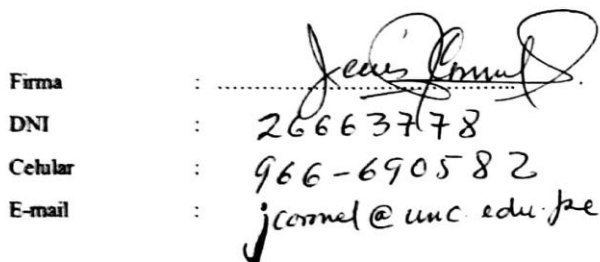 Firma : ........................................
DNI : 26663778
Celular : 966-690582
E-mail : jcoronel@unc.edu.pe